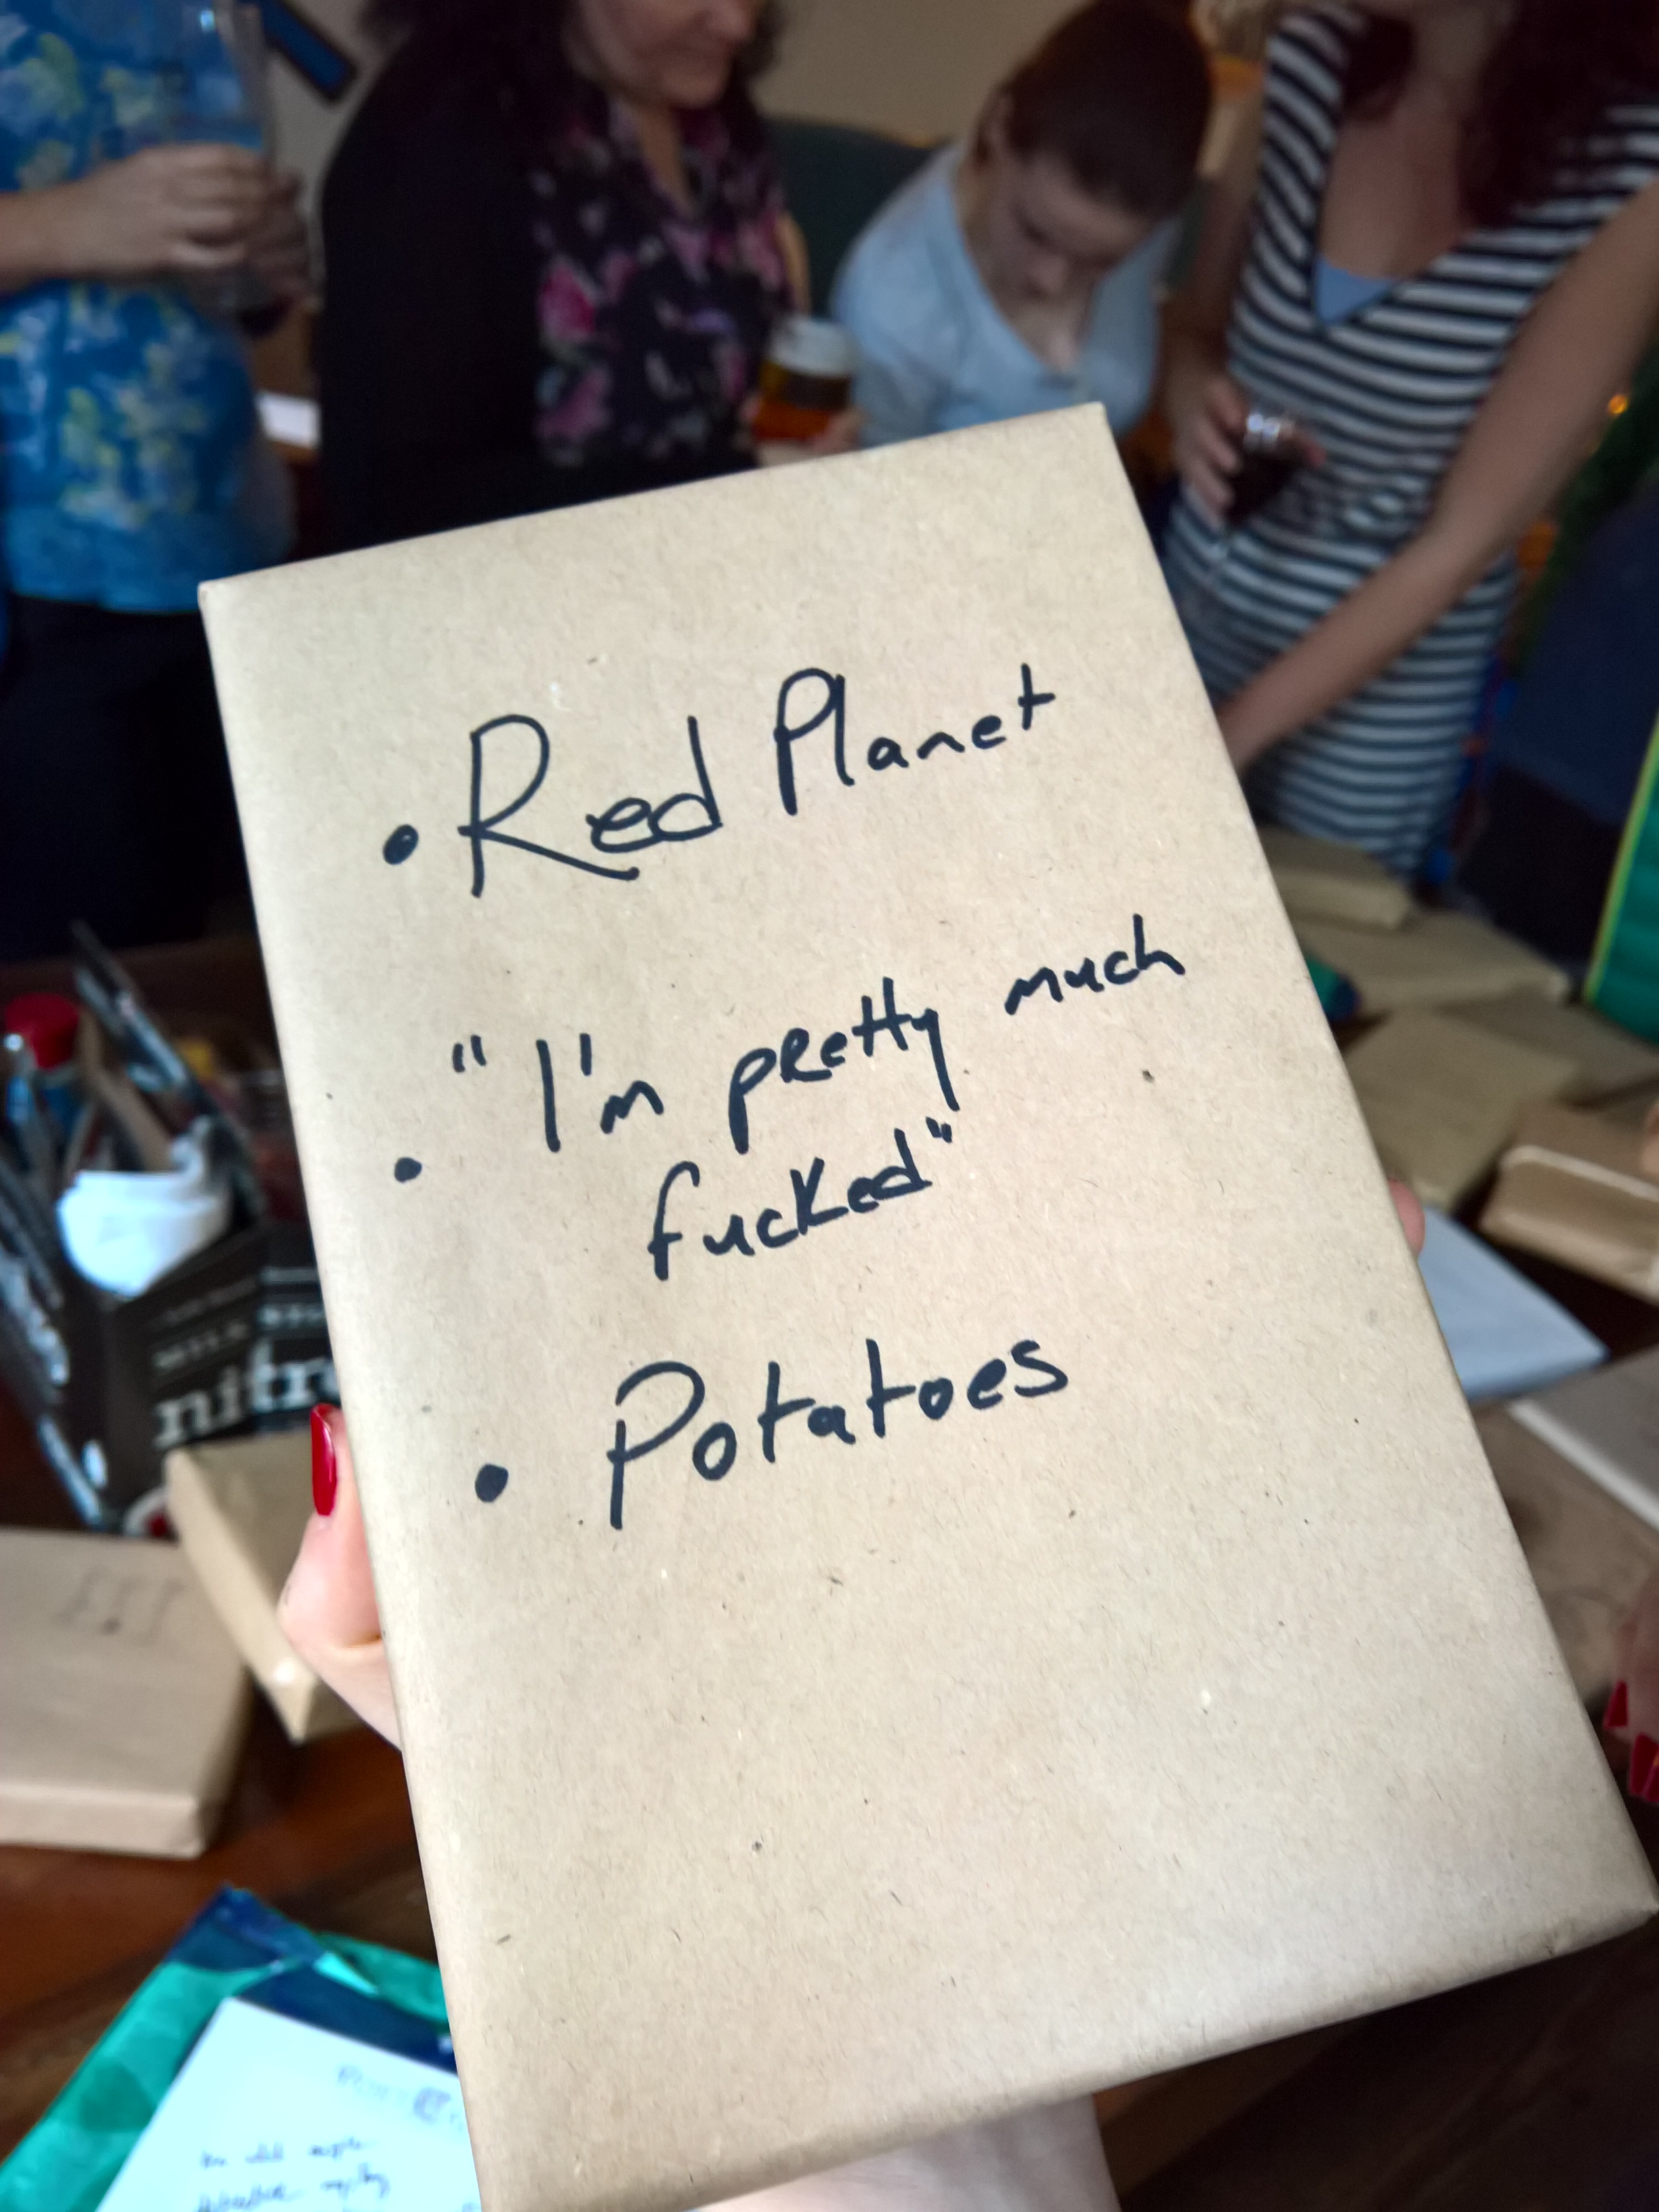 • Red Planet
• "I'm pretty much
fucked"
• Potatoes
MILK
nitr